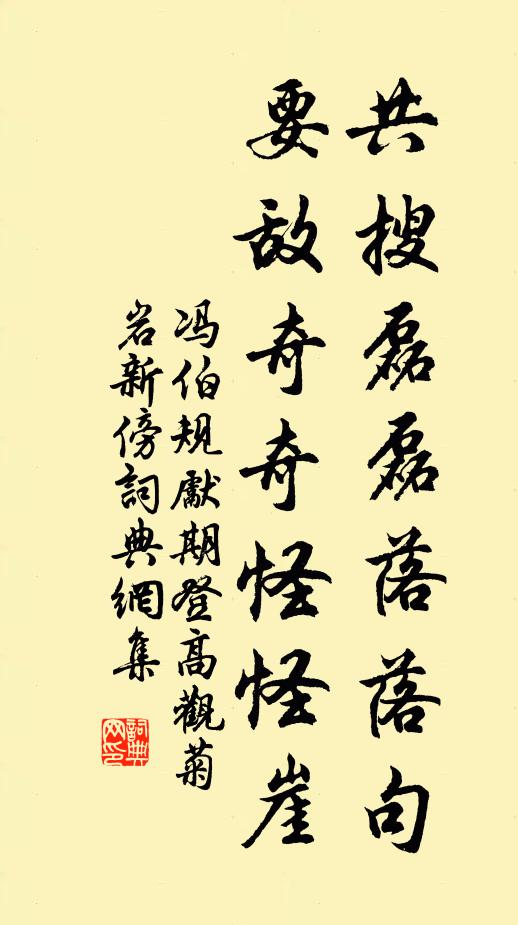 共搜磊磊落落句
要敌奇奇怪怪崖
冯伯规獻期登高觀菊
岩新傍詞典網集
詞典网印